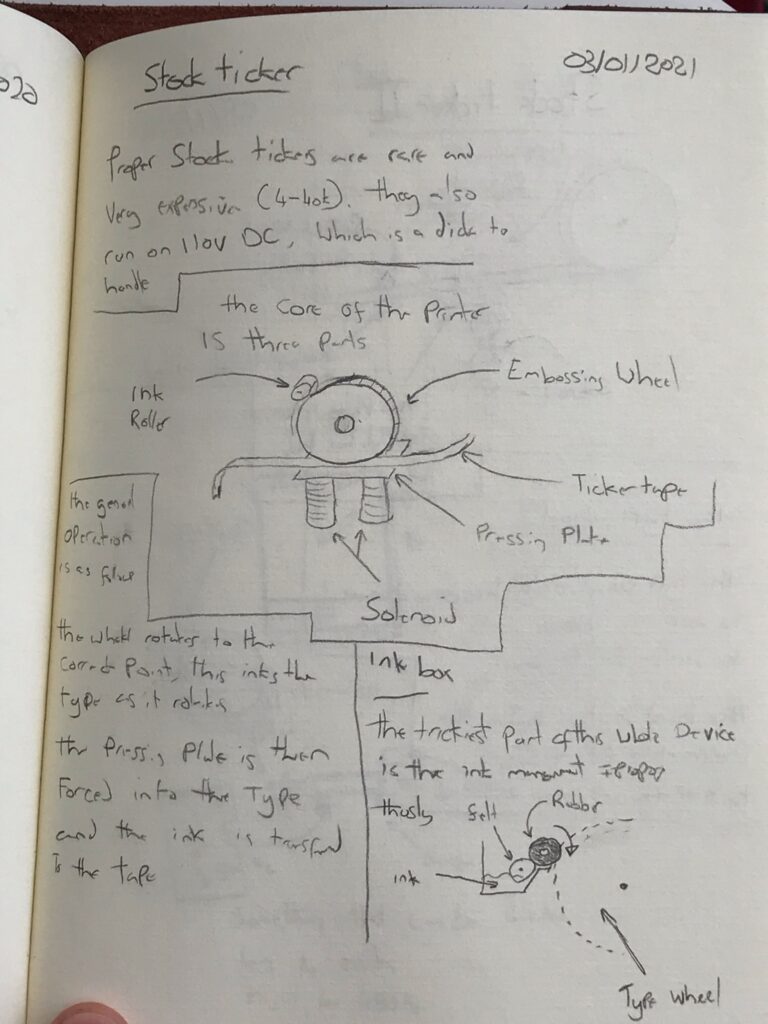 020
Stock ticker
03/01/2021
Proper Stock tickers are rare and
very expensive (4-40k). they also
run on 110V DC, which is a dick to
handle
the Core of the Printer
is three parts
Ink
Roller
Embossing Wheel
Ticker tape
Pressing Plate
Solenoid
the general
operation
is as
the wheel rotates to the
Correct Point, this inks the
type as it rotates
the Pressing Plate is then
Forced into the Type
and the ink is
to the tape
Ink box
the trickiest part of this whole Device
is the ink
thusly
felt
Rubber
ink
Type wheel